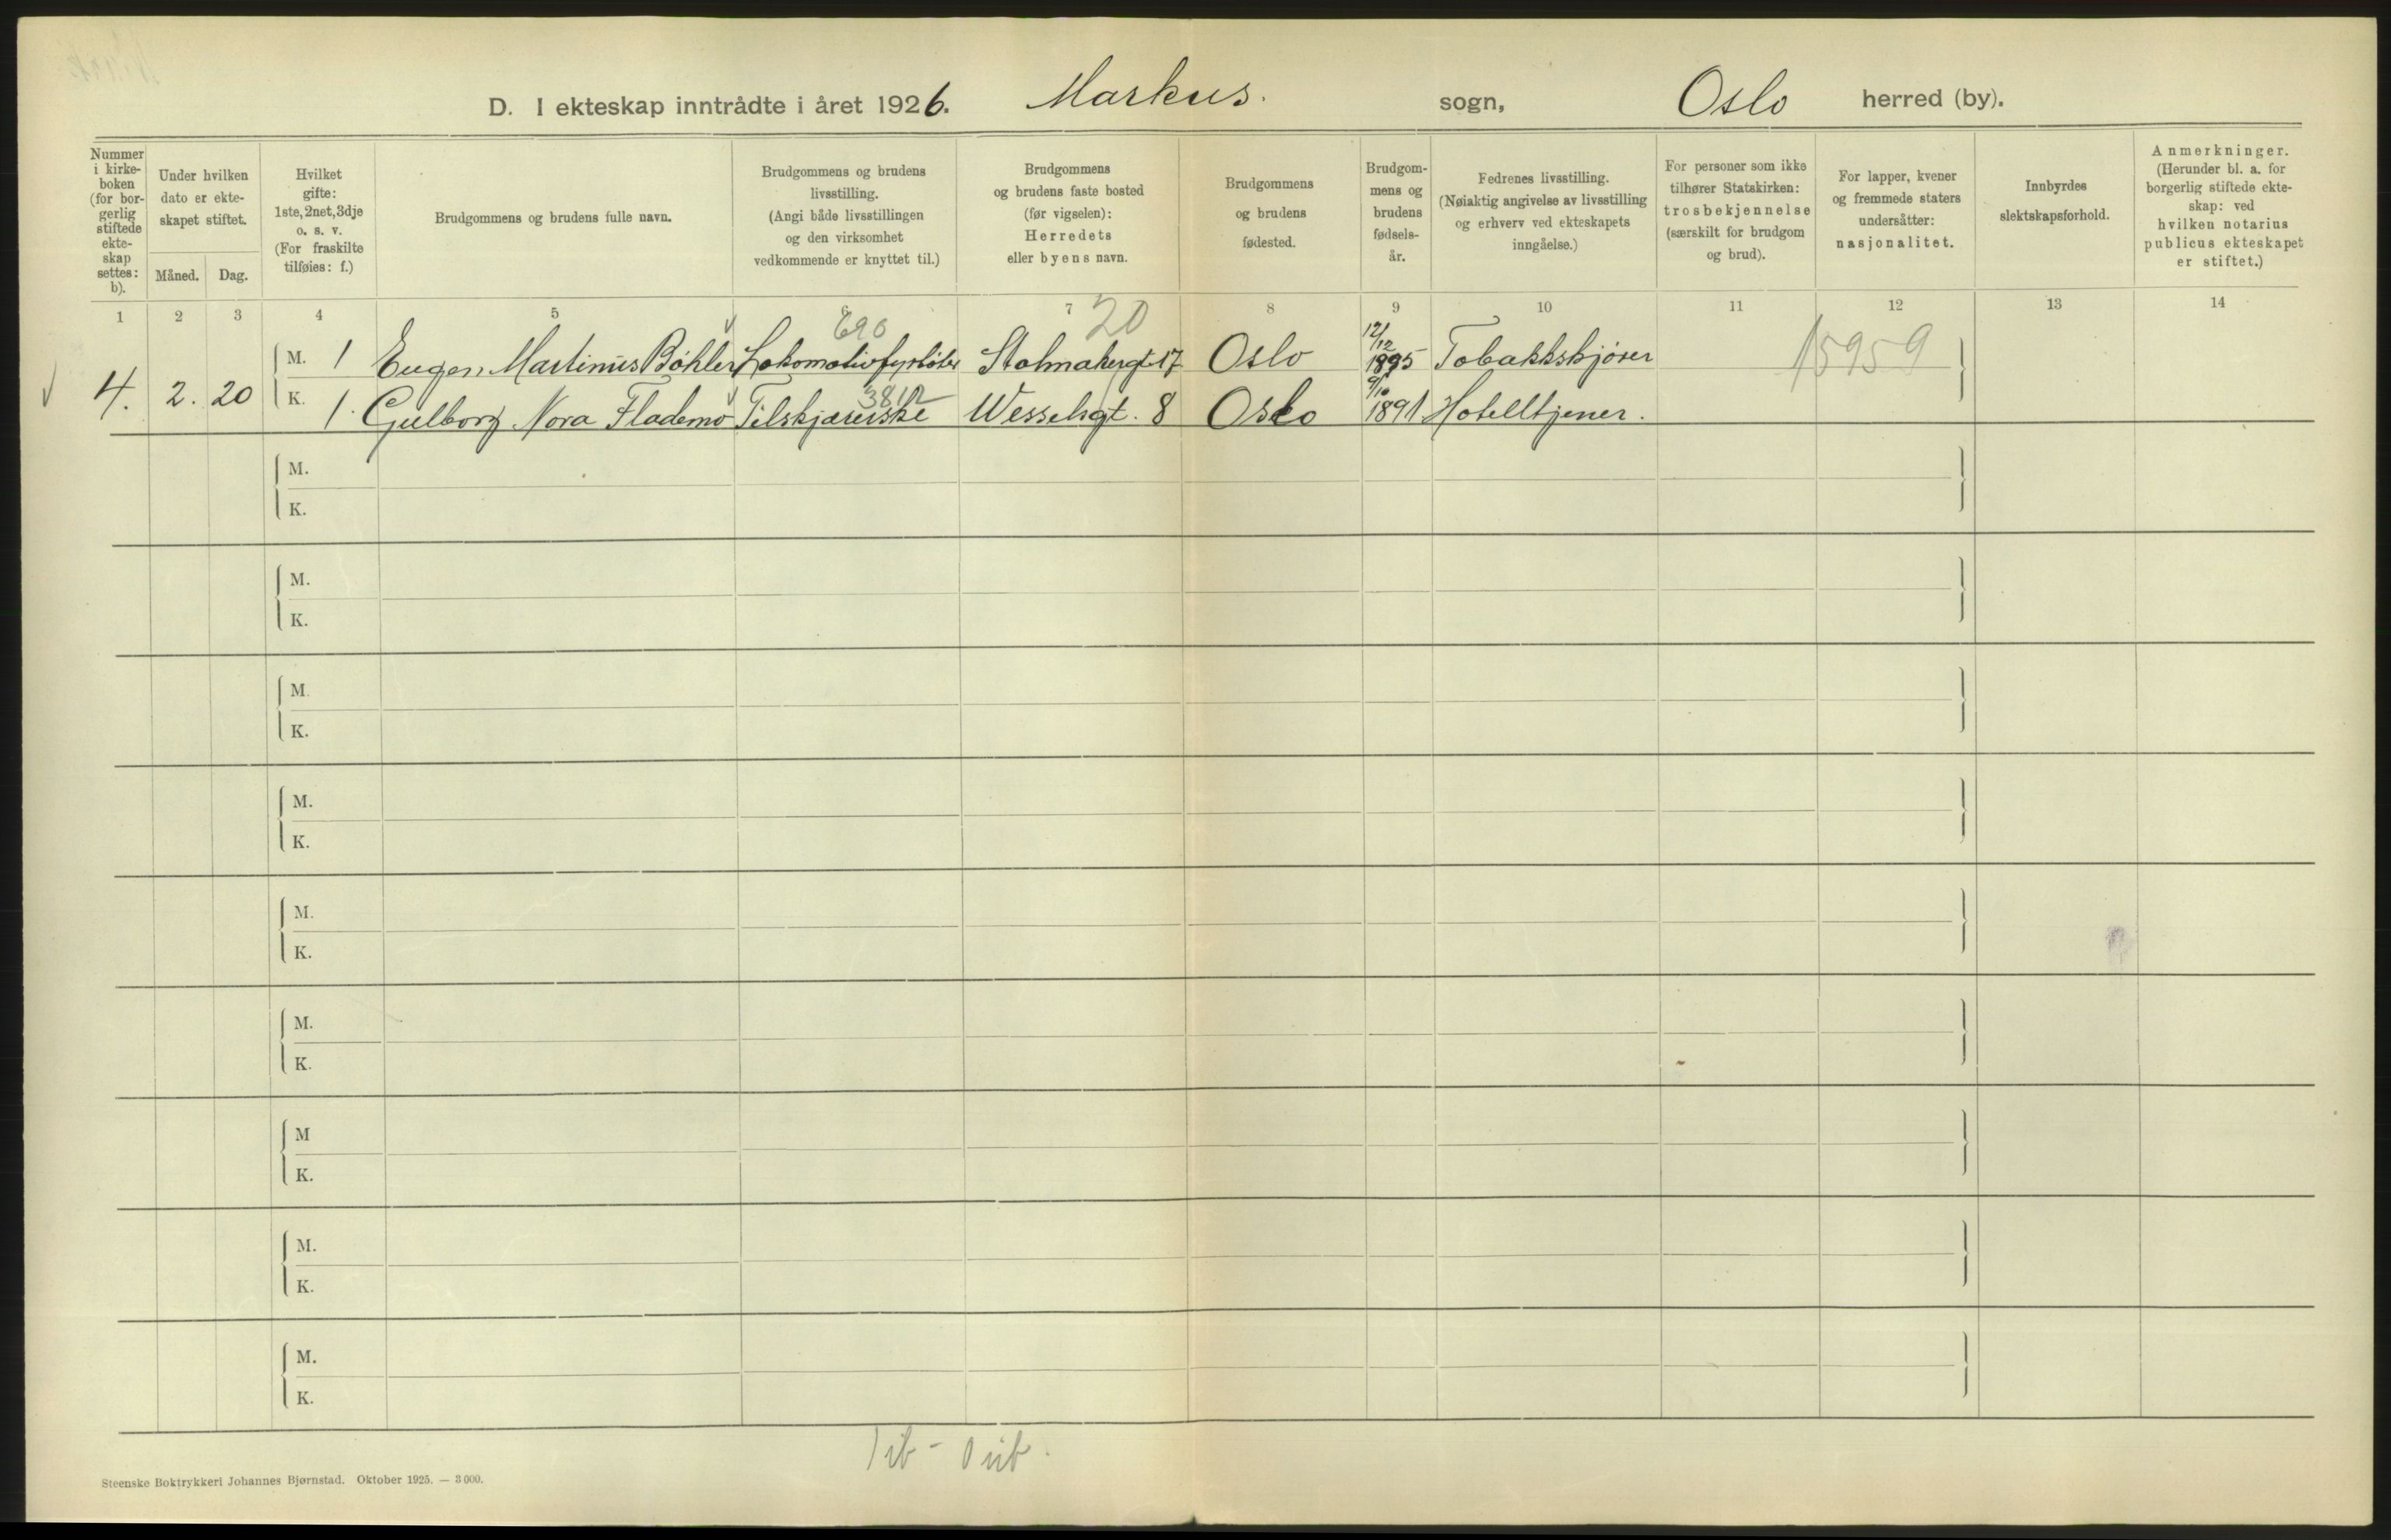 D. I ekteskap inntrådte i året 1926. Markus. sogn, Oslo herred (by).
Nummer i kirke-boken (for bor-gerlig stiftede ekte-skap settes: b).
Under hvilken dato er ekte-skapet stiftet.
Måned. Dag.
Hvilket gifte: 1ste, 2net, 3dje o. s. v. (For fraskilte tilføies: f.)
Brudgommens og brudens fulle navn.
Brudgommens og brudens livsstilling. (Angi både livsstillingen og den virksomhet vedkommende er knyttet til.)
Brudgommens og brudens faste bosted (før vigselen): Herredets eller byens navn.
Brudgommens og brudens fødested.
Brudgom-mens og brudens fødsels-år.
Fedrenes livsstilling. (Nøiaktig angivelse av livsstilling og erhverv ved ekteskapets inngåelse.)
For personer som ikke tilhører Statskirken: trosbekjennelse (særskilt for brudgom og brud).
For lapper, kvener og fremmede staters undersåtter: nasjonalitet.
Innbyrdes slektskapsforhold.
Anmerkninger. (Herunder bl. a. for borgerlig stiftede ekte-skap: ved hvilken notarius publicus ekteskapet er stiftet.)
1 2 3 4 5 6 7 8 9 10 11 12 13 14
690 20
M. 1 Eugen Martinus Bøhler Lokomotivfyrbøter Stolmakergt 17 Oslo 12/12 1895 Tobakkskjører 15959
4. 2. 20
3812
K. 1. Gulborg Nora Flademo Tilskjærerske Wesselsgt. 8 Oslo 9/10 1891 Hotelltjener.
M.
K.
M.
K.
M.
K.
M.
K.
M.
K.
M.
K.
M
K.
M.
K.
M.
K.
Steenske Boktrykkeri Johannes Bjørnstad. Oktober 1925. — 3 000.